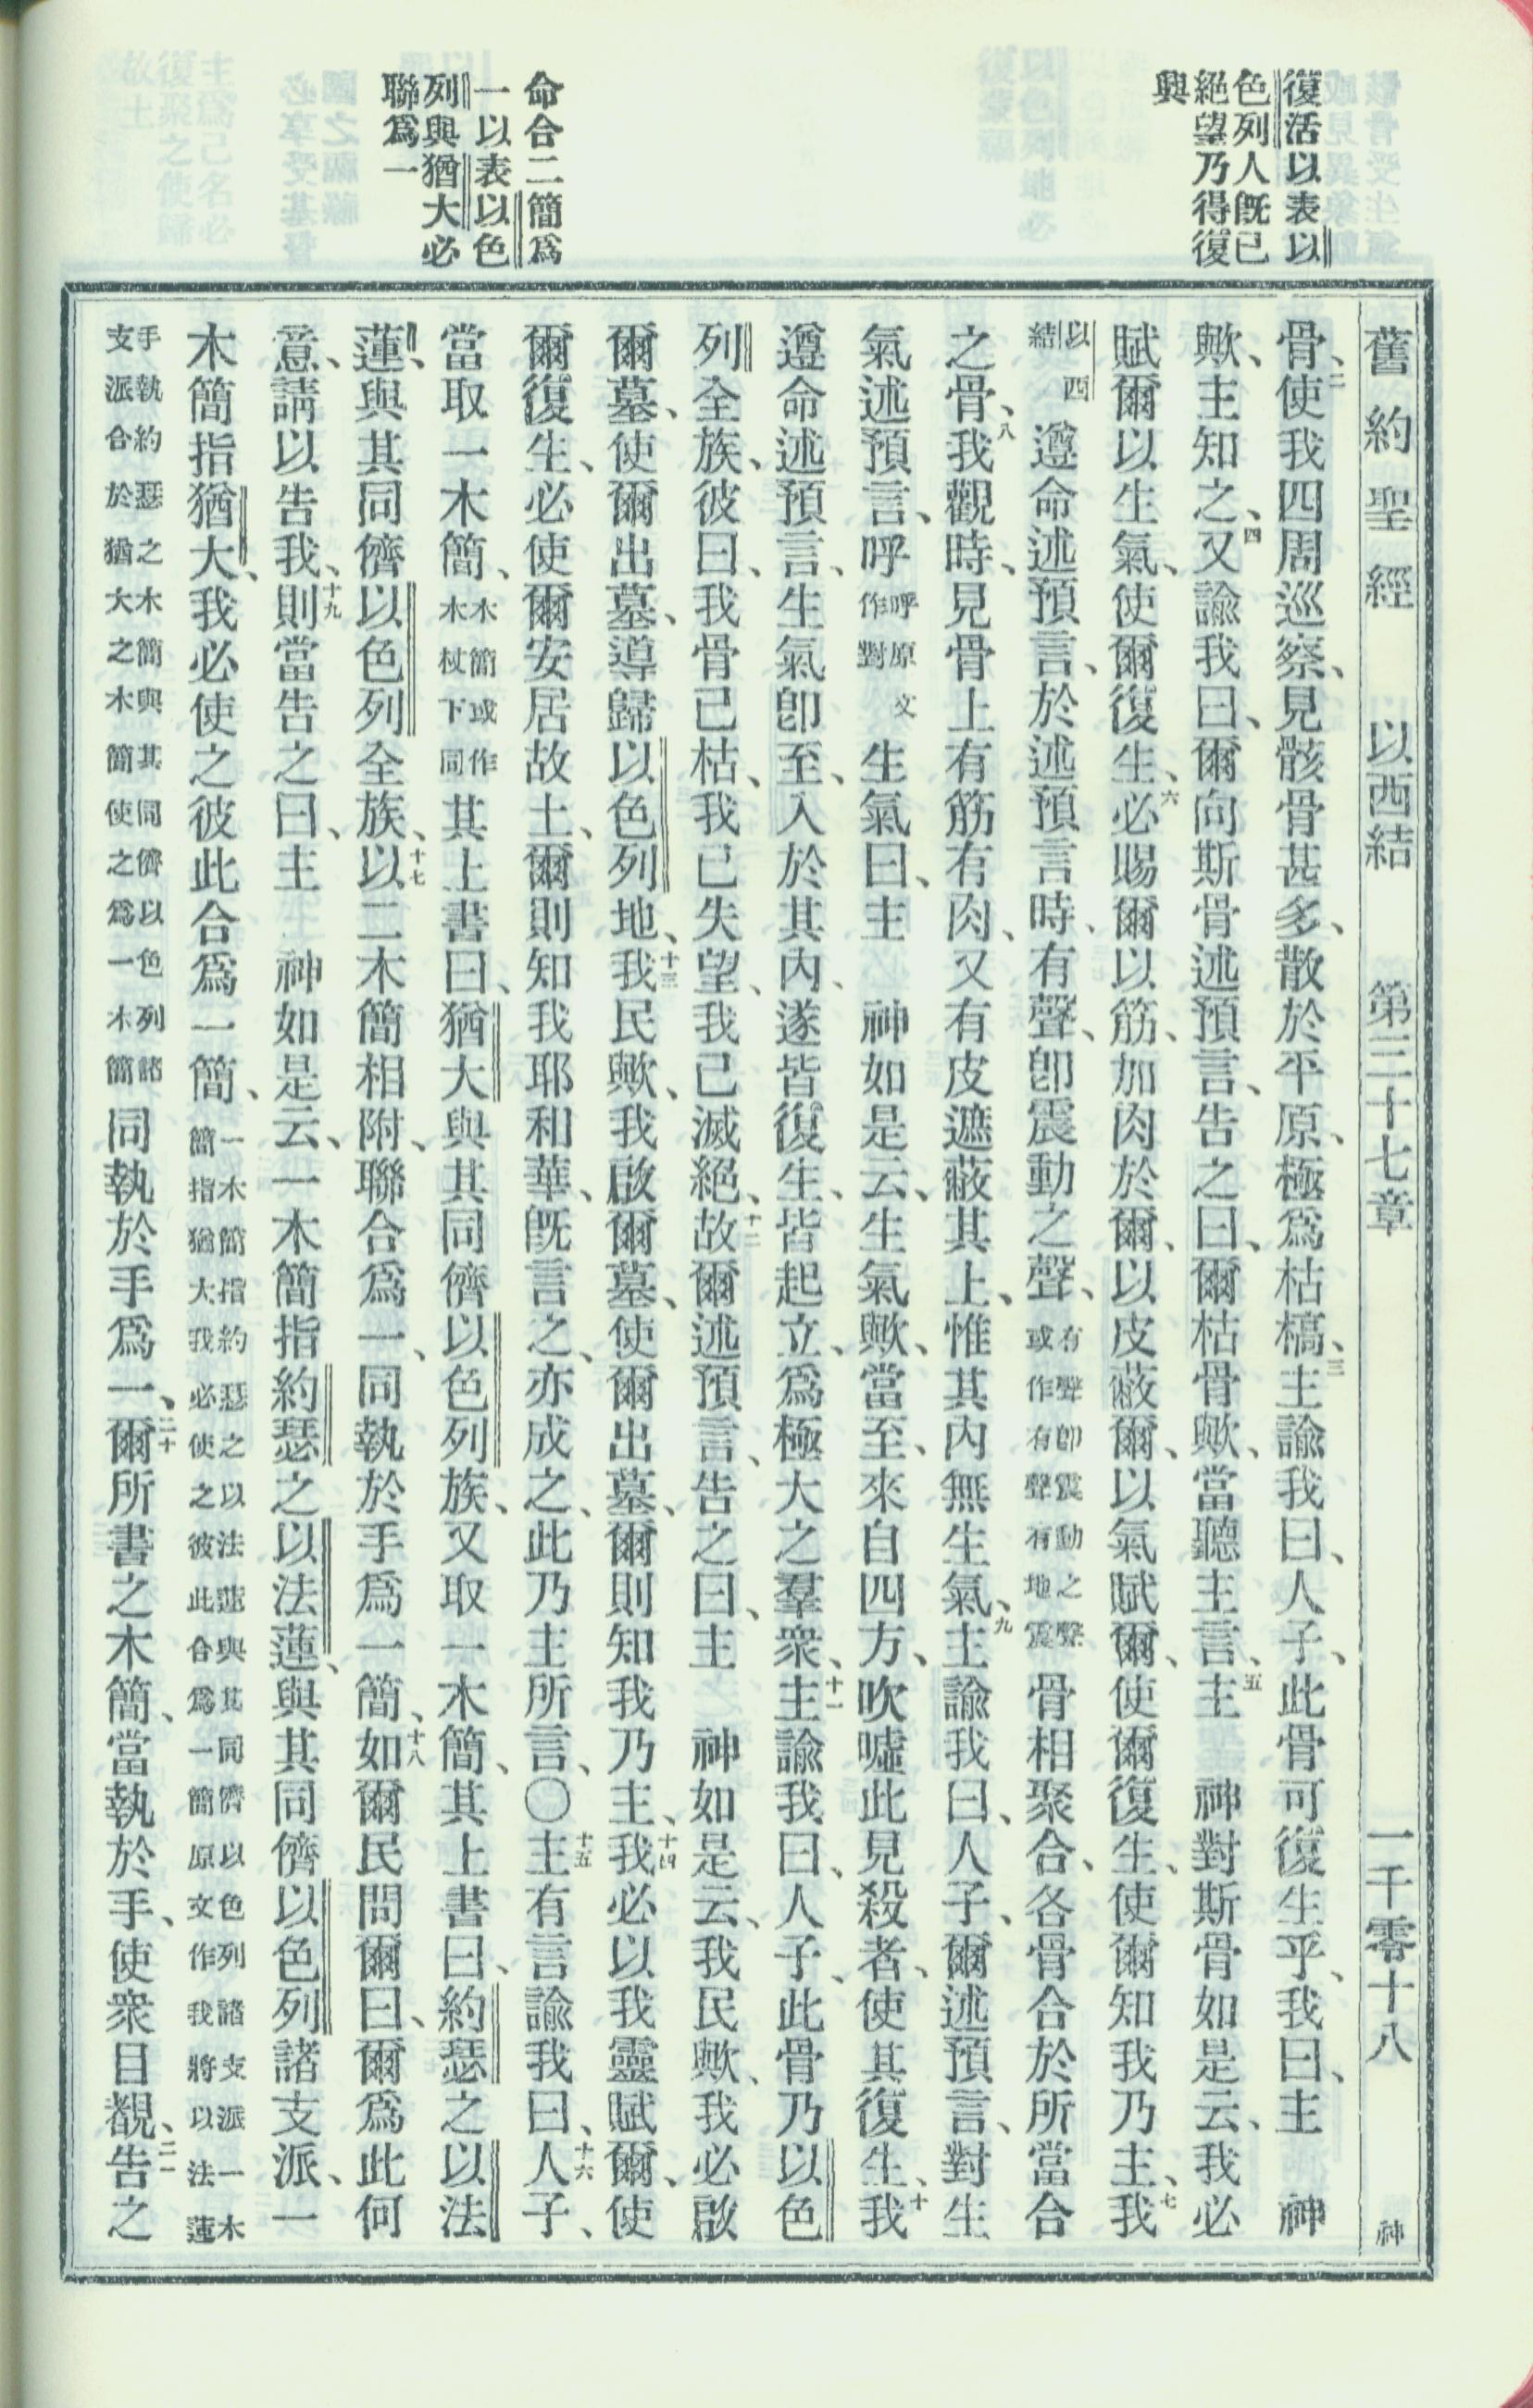 復活以表以
色列人既已
絕望乃得復
興
命合二簡爲
一以表以色
列與猶大必
聯爲一
舊約聖經 以西結 第三十七章 一千零十八 神
骨、二使我四周巡察、見骸骨甚多、散於平原、極爲枯槁、三主諭我曰、人子、此骨可復生乎、我曰、主 神
歟、主知之、四又諭我曰、爾向斯骨述預言、告之曰、爾枯骨歟、當聽主言、五主 神對斯骨如是云、我必
賦爾以生氣、使爾復生、六必賜爾以筋、加肉於爾、以皮蔽爾、以氣賦爾、使爾復生、使爾知我乃主、七我
以西結遵命述預言、於述預言時、有聲、卽震動之聲、有聲卽震動之聲或作有聲有地震骨相聚合、各骨合於所當合
之骨、八我觀時、見骨上有筋有肉、又有皮遮蔽其上、惟其內無生氣、九主諭我曰、人子、爾述預言、對生
氣述預言、呼呼原文作對生氣曰、主 神如是云、生氣歟、當至、來自四方、吹噓此見殺者、使其復生、十我
遵命述預言、生氣卽至、入於其內、遂皆復生、皆起立、爲極大之羣衆、十一主諭我曰、人子、此骨乃以色
列全族、彼曰、我骨已枯、我已失望、我已滅絕、十二故爾述預言、告之曰、主 神如是云、我民歟、我必啟
爾墓、使爾出墓、導歸以色列地、十三我民歟、我啟爾墓、使爾出墓、爾則知我乃主、十四我必以我靈賦爾、使
爾復生、必使爾安居故土、爾則知我耶和華、既言之、亦成之、此乃主所言、〇十五主有言諭我曰、十六人子、
當取一木簡、木簡或作木杖下同其上書曰、猶大與其同儕以色列族、又取一木簡、其上書曰、約瑟之以法
蓮、與其同儕以色列全族、十七以二木簡相附、聯合爲一、同執於手爲一簡、十八如爾民問爾曰、爾爲此何
意、請以告我、十九則當告之曰、主 神如是云、一木簡指約瑟之以法蓮、與其同儕以色列諸支派、一
木簡指猶大、我必使之彼此合爲一簡、一木簡指約瑟之以法蓮與其同儕以色列諸支派一木簡指猶大我必使之彼此合爲一簡原文作我將以法蓮
手執約瑟之木簡與其同儕以色列諸支派合於猶大之木簡使之爲一木簡同執於手爲一、二十爾所書之木簡、當執於手、使衆目覩、二一告之